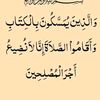 وَالَّذِينَ يُمَسِّكُونَ بِالْكِتَابِ
وَأَقَامُوا الصَّلَاةَ إِنَّا لَا نُضِيعُ
أَجْرَ الْمُصْلِحِينَ